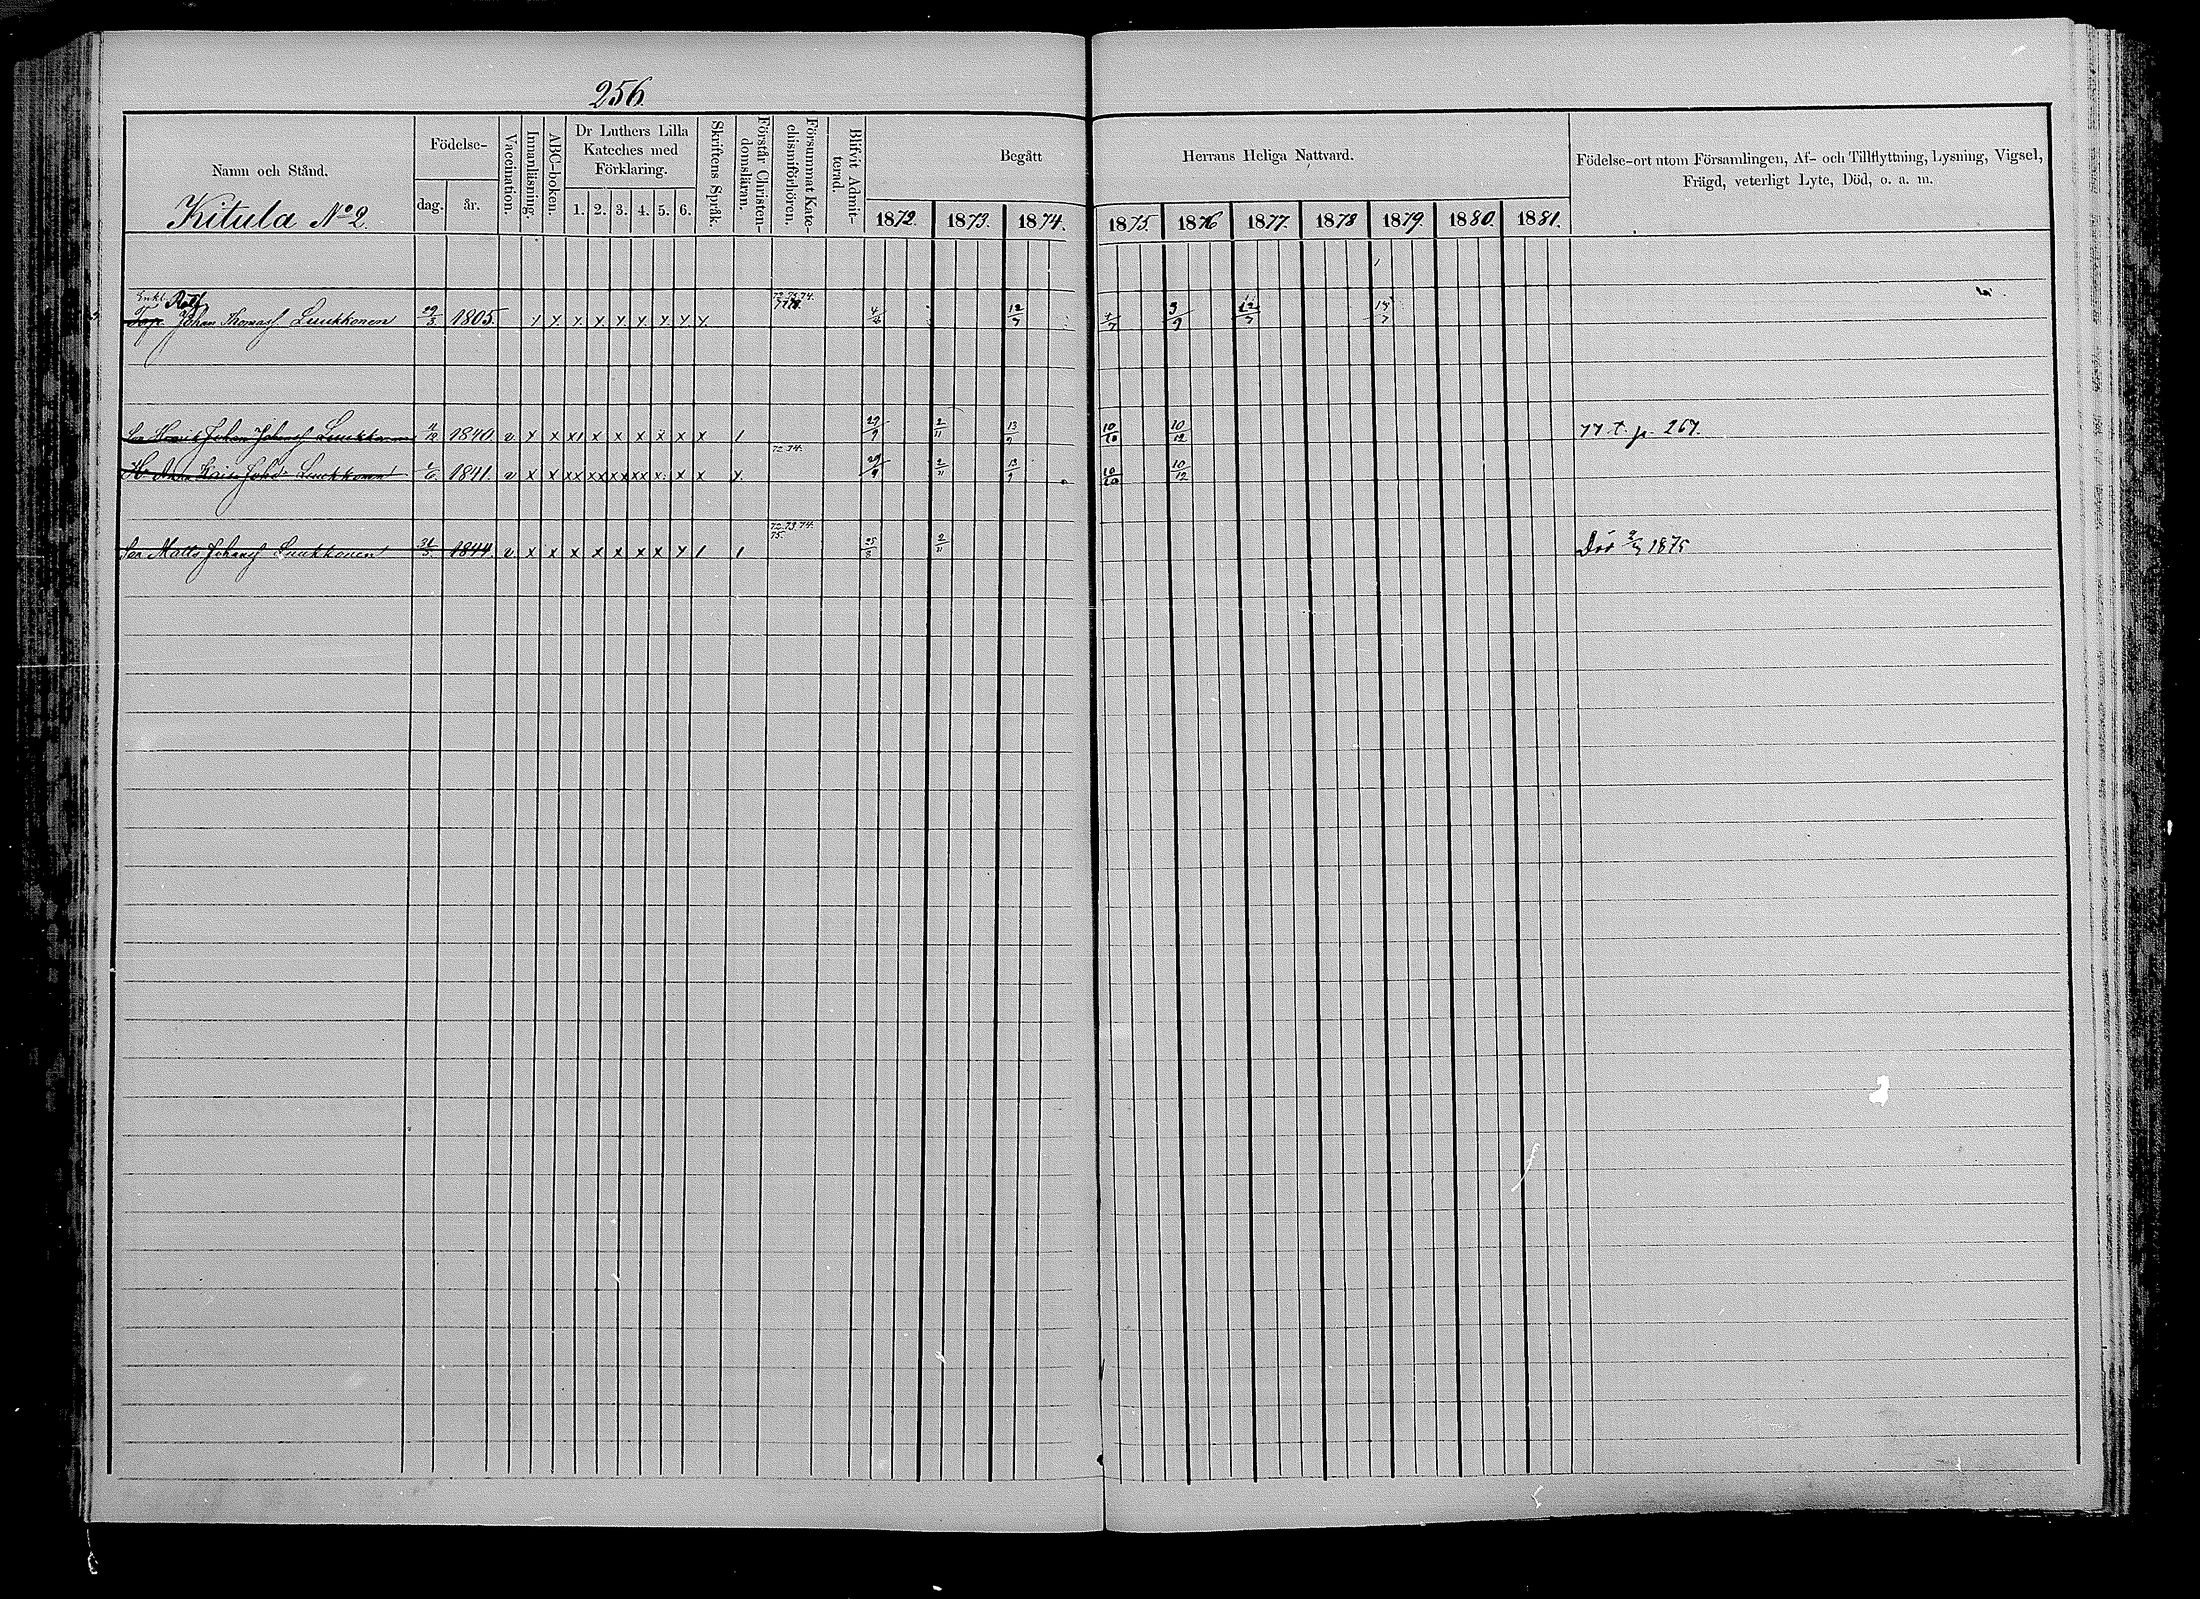 256.
Namn och Stånd.
Kitula No 2.
Födelse-
dag. år.
Vaccination.
Innanläsning.
ABC-boken.
Dr Luthers Lilla
Kateches med
Förklaring.
1. 2. 3. 4. 5. 6.
Skriftens Språk.
Förstår Christen-
domsläran.
Försummat Kate-
chismiförhören.
Blifvit Admit-
terad.
Begått Herrans Heliga Nattvard.
1872. 1873. 1874. 1875. 1876 1877. 1878 1879. 1880. 1881.
Födelse-ort utom Församlingen, Af- och Tillflyttning, Lysning, Vigsel,
Frägd, veterligt Lyte, Död, o. a. m.
Enkl.
Johan Thomass Luukkonen 29/3 1805. x x x x x x x x x 12/7 3/9 12/7
Son Johan Johanss Luukkonen 1840. v x x x1 x x x x x x 1 29/9 2/11 13/9 10/10 10/12 77 t. p. 267.
72.74.
H. Anna Luukkonen 1841. v x x xx xx xx xx x. x x x. 29/9 2/11 13/9 10/10 10/12
72.73.74.
75.
Son Matts Johanss Luukkonen 31/3. 1844. v x x x x x x x x 1 1 25/3 2/11 Död 1875